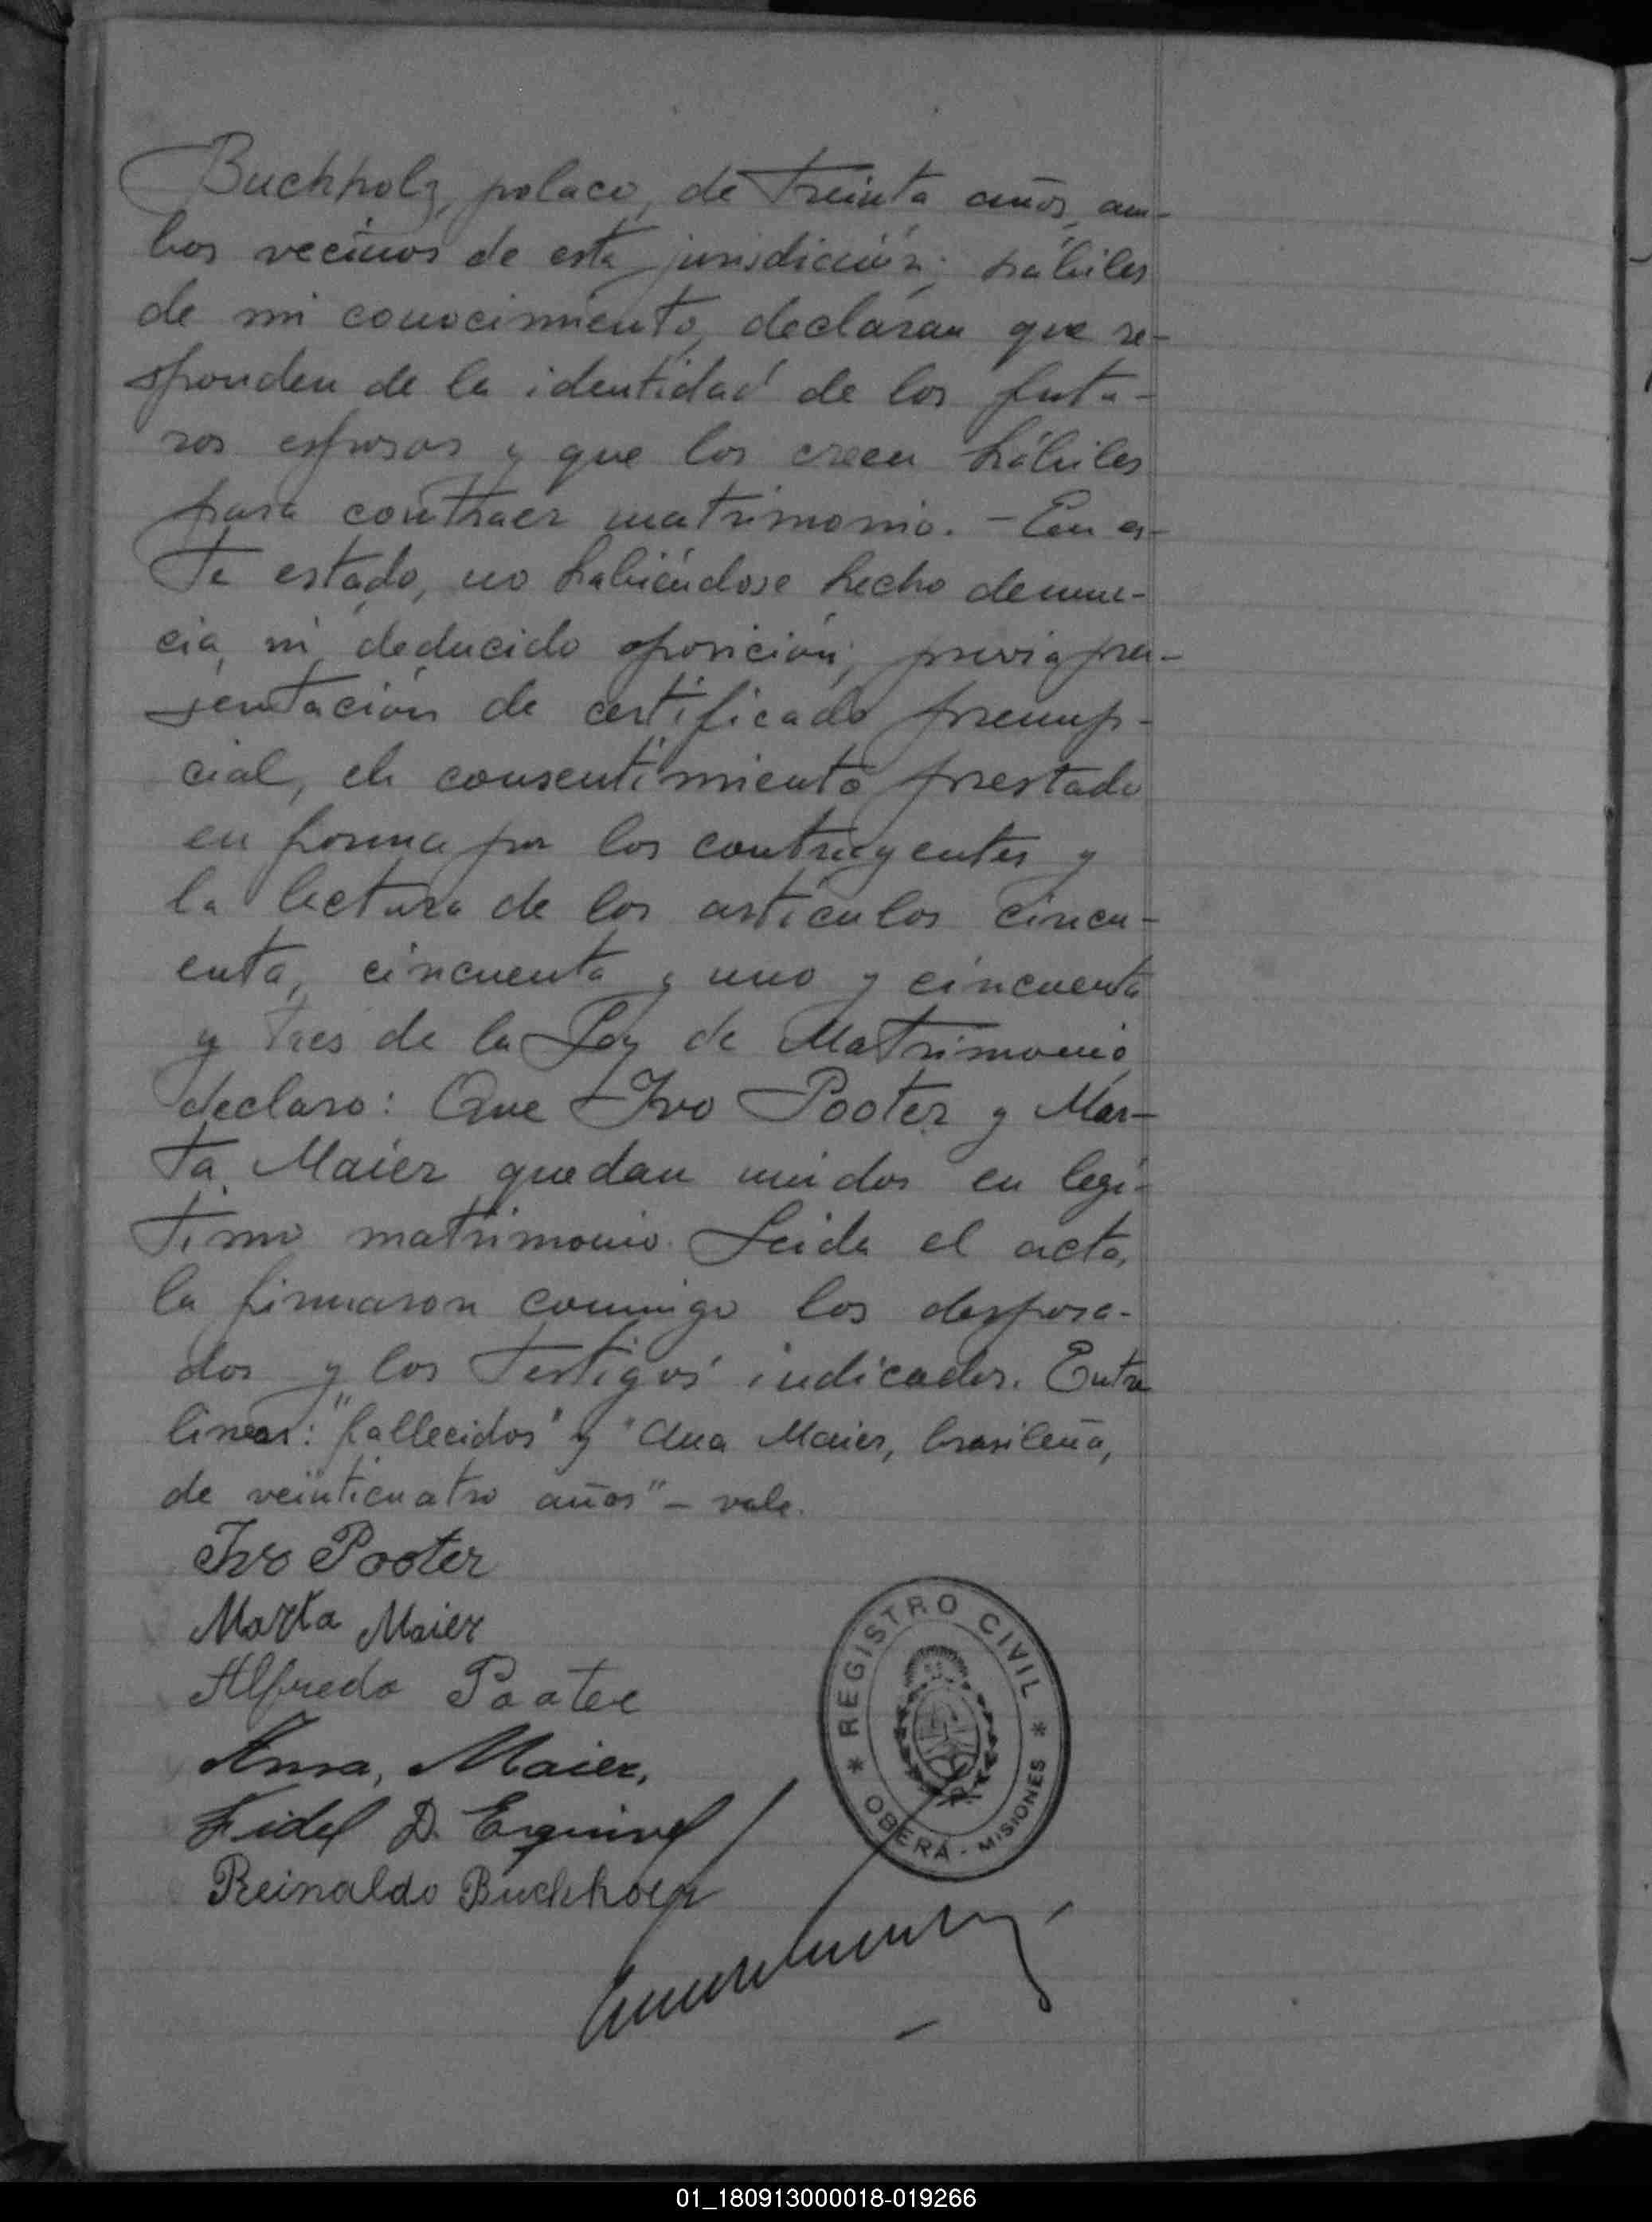 Buchholz, polaco, de treinta años, am-
bos vecinos de esta jurisdicción; hábiles
de mi conocimiento, declaran que re-
sponden de la identidad de los futu-
ros esposos y que los creen hábiles
para contraer matrimonio. - En es-
te estado, no habiéndose hecho denun-
cia, ni deducido oposición; previa pre-
sentación de certificado prenup-
cial, el consentimiento prestado
en forma por los contrayentes y
la lectura de los artículos cincu-
enta, cincuenta y uno y cincuenta
y tres de la Ley de Matrimonio
declaro: Que Ivo Pooter y Mar-
ta Maier quedan unidos en legí-
timo matrimonio. Leida el acta,
la firmaron conmigo los desposa-
dos y los testigos indicados. Entre
lineas: "fallecidos" y "Ana Maier, brasileña,
de veinticuatro años" - vale.
Ivo Pooter
Marta Maier
Alfredo Pooter
Anna, Maier,
Fidel D. Esquivel
Reinaldo Buchholz
* REGISTRO CIVIL *
OBERÁ - MISIONES
01_180913000018-019266